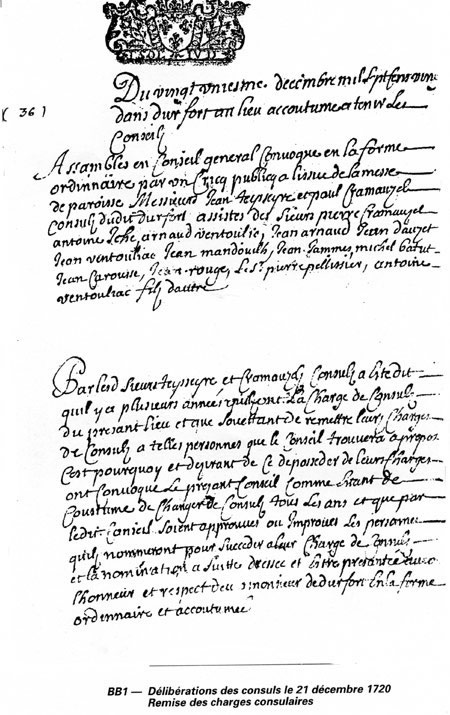 Du vingt uniesme decembre mil sept cens vingt
( 36 )
dans durfort au lieu accoutume a tenir Le
Conseil
Assambles en Conseil general Convoque en la forme
ordinnaire par un Cricq publicq a lissue de la messe
de paroisse Messieurs Jean teysseyre et paul Cramauzel
Consulz dudit durfort assistes des sieurs pierre Cramauzel
antoine arnaud ventoulie, Jean arnaud Jean dauzet
Jean ventouliac Jean mandouilh, Jean Jammes, michel batut
Jean Carousse, Jean rouge, Le Sr pierre pellissier, antoine
ventouliac filz dautre
Par lesd sieurs teysseyre et Cramauzel Consulz a este dit
quil y a plusieurs années La Charge de Consulz
du presant lieu et que souettant de remettre leurs Charges
de Consulz a telles personnes que le Conseil trouvera a propos
Cest pourquoy et dezirant de Ce deposeder de leurs Charges
ont Convoque Le prezant Conseil Comme estant de
Coustume de Changer de Consulz tous les ans et que par
ledit Conseil soient approuves ou improuves les personnes
quilz nommeront pour succeder a leur Charge de Consulz
et la nomination a suitte dressee et estre presantée avec
lhonneur et respect deu a monsieur de durfort En la forme
ordennaire et accoutumee
BB1 — Délibérations des consuls le 21 décembre 1720
Remise des charges consulaires